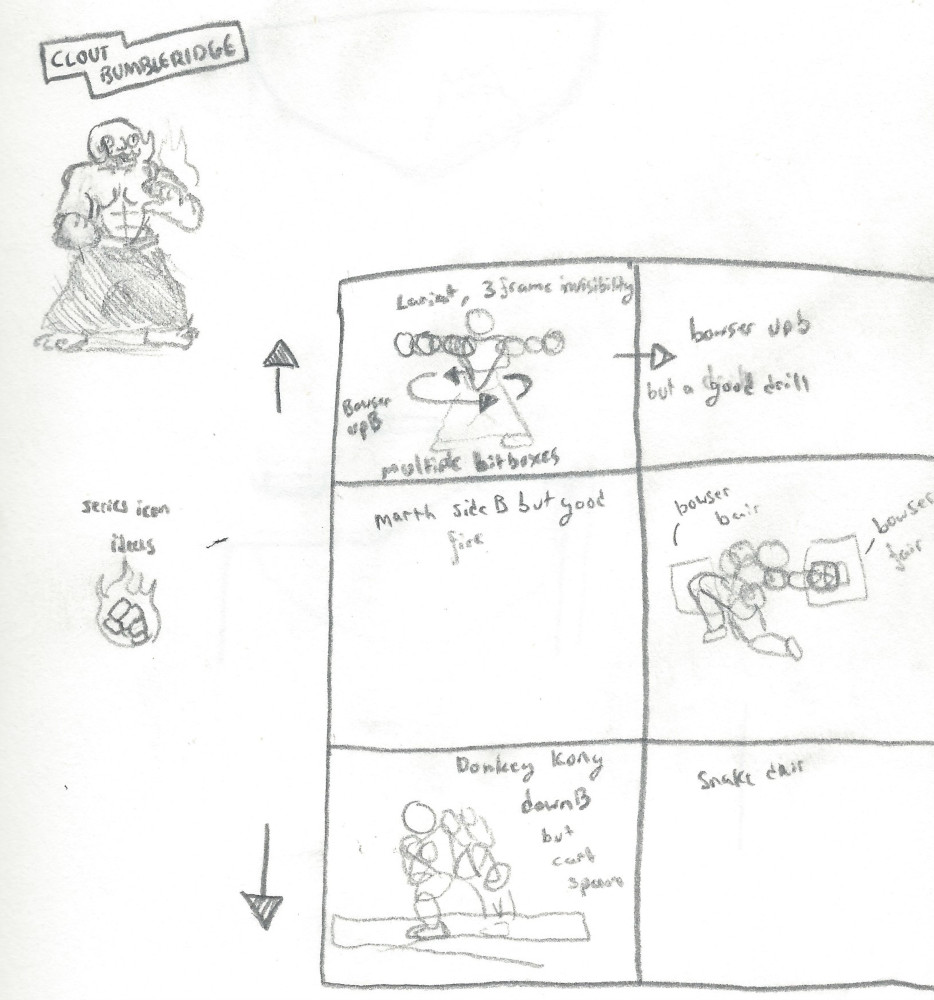 CLOUT
BUMBLERIDGE
Lariat, 3 frame invisibility
Bowser
upB
multiple hitboxes
bowser upb
but a good drill
series icon
ideas
marth side B but good
fire
bowser
bair
bowser
fair
Donkey Kong
downB
but
cant
Snake dair